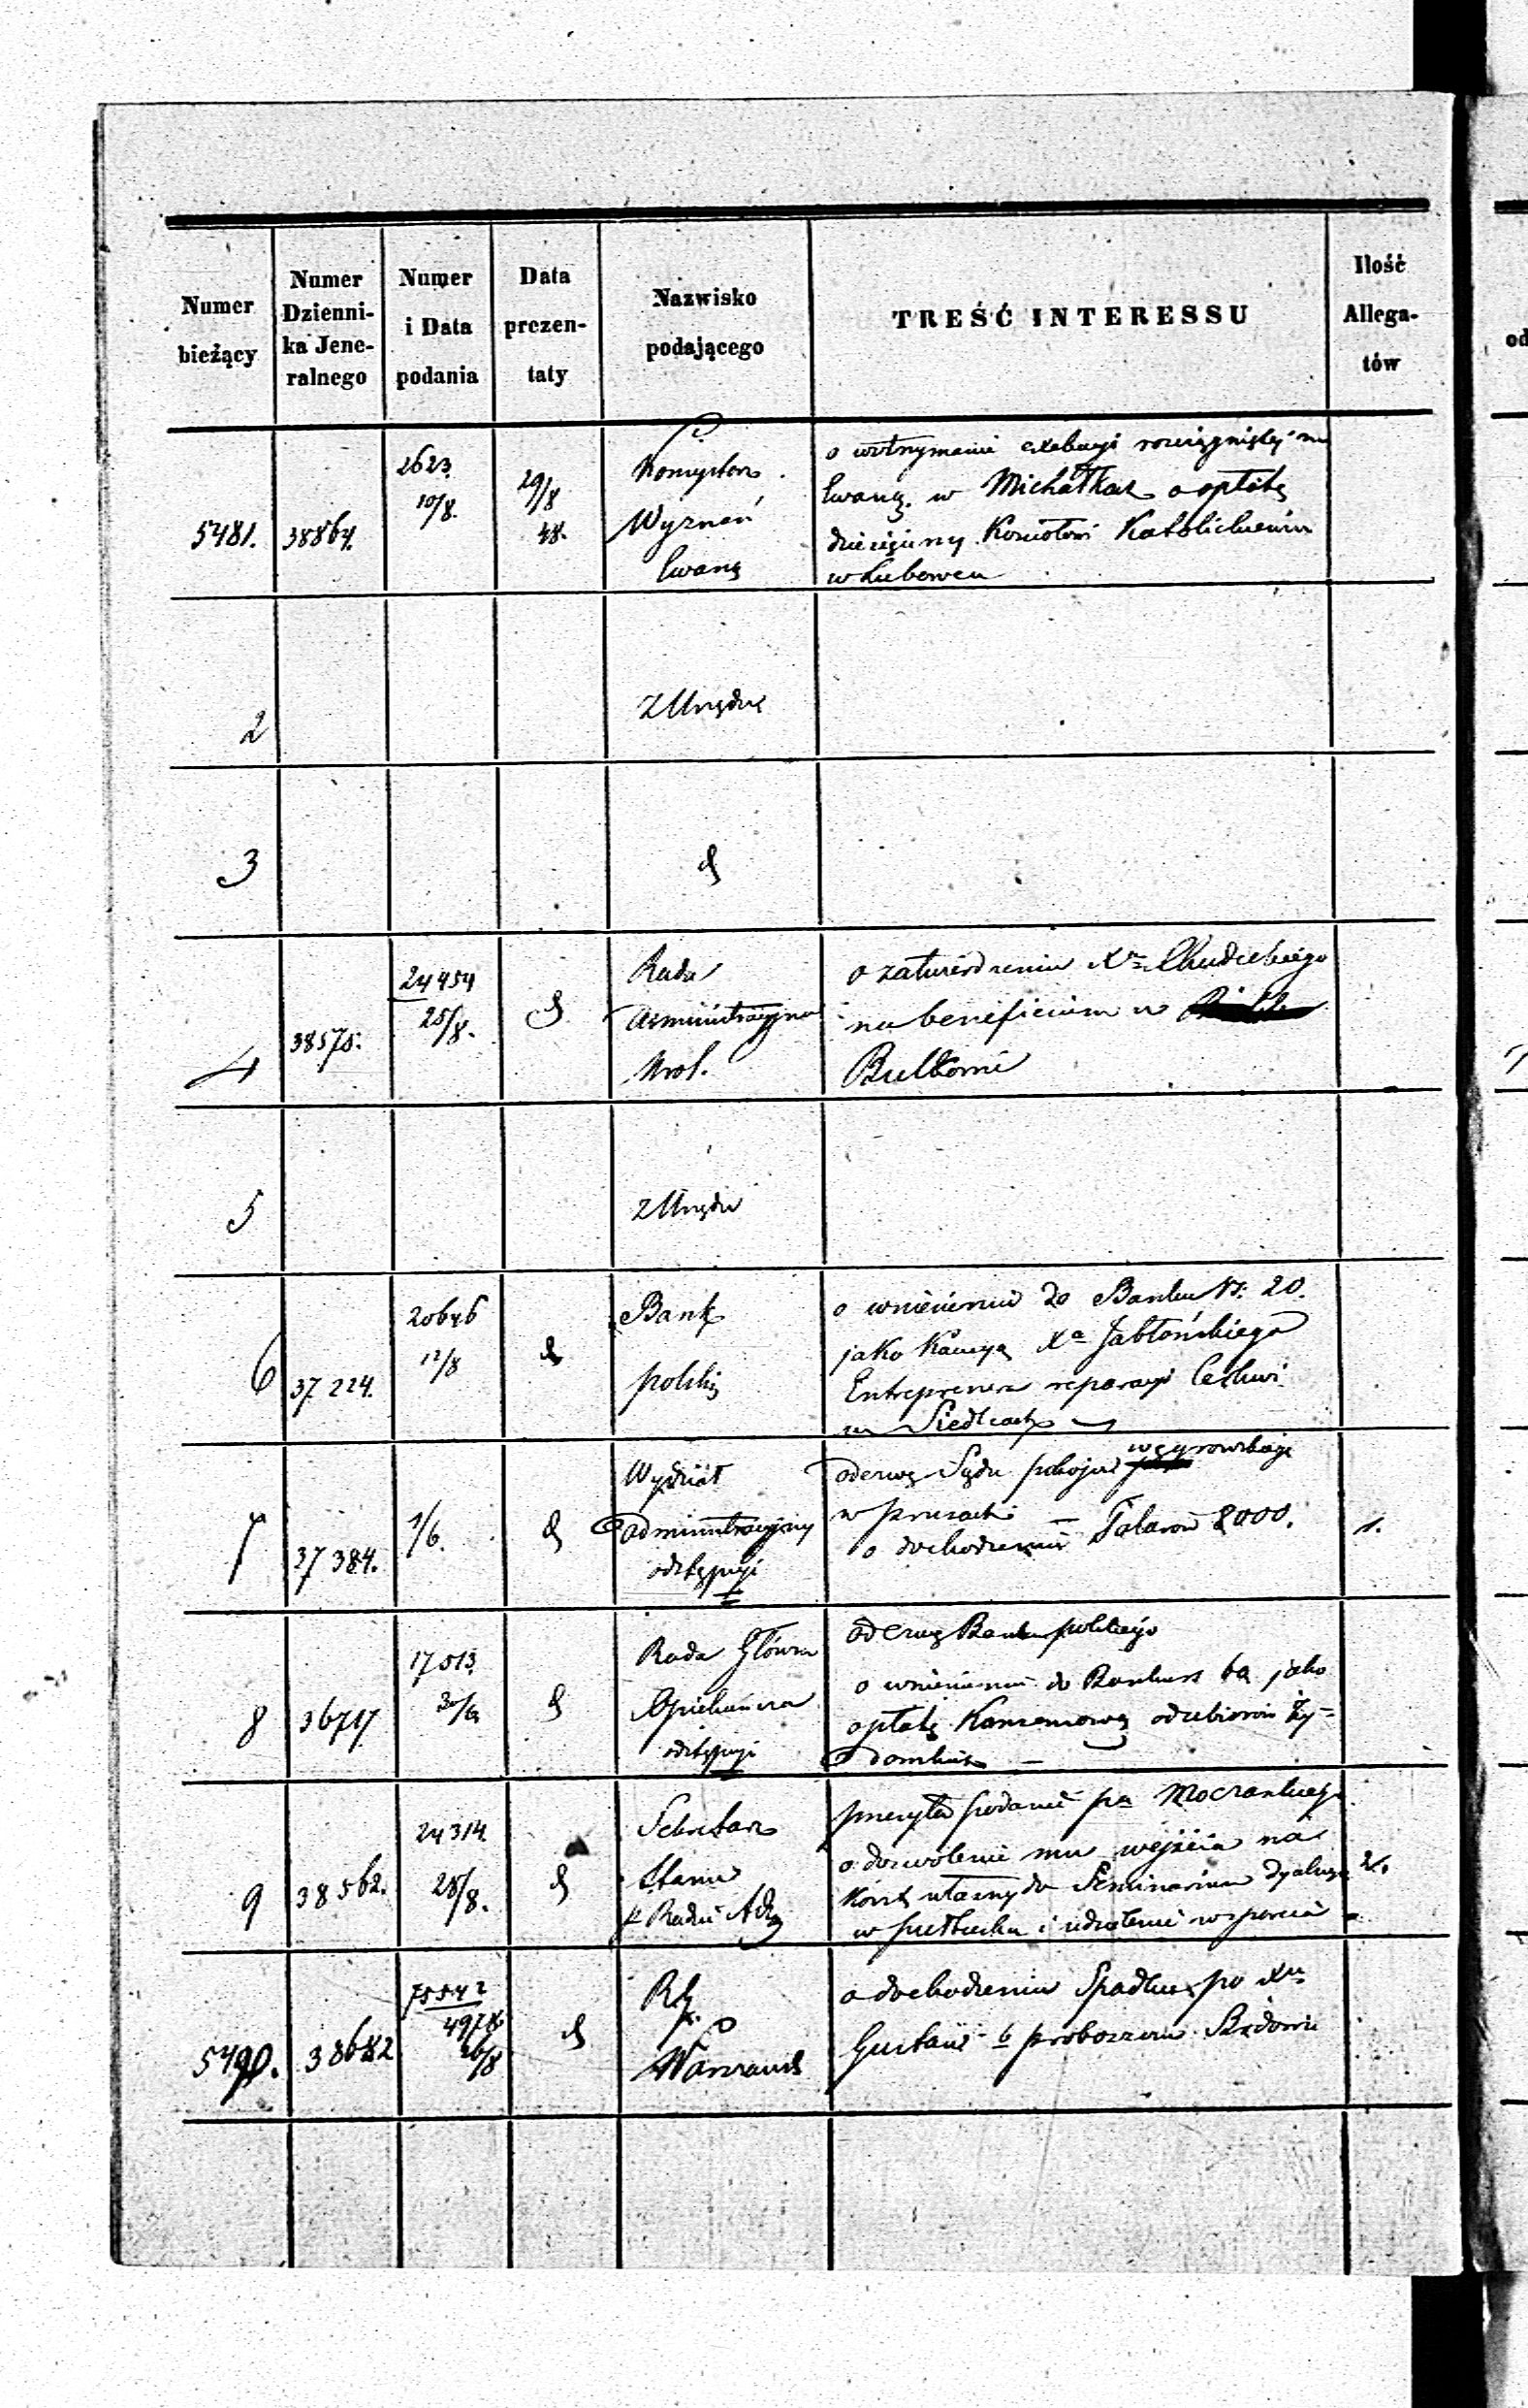 Numer
bieżący
Numer
Dzienni-
ka Jene-
ralnego
Numer
i Data
podania
Data
prezen-
taty
Nazwisko
podającego
TREŚĆ INTERESSU
Ilość
Allega-
tów
od
5481.
38864.
2623.
10/8.
29/8
48.
Wyznań
Ewang
o wstrzymanie
Ewang. w Michałkach o opłatę
dziesięciny Kościołowi Katolickiemu
w Lubowcu
2
z Urzędu
3
4
38575.
24454
25/8.
Rada
Administracyjna
Krol.
o zatwierdzeniu Xa Chudzickiego
na beneficium w
Bulkowie
5
z Urzędu
6
37224.
20646
12/8
Bank
polski
o wniesieniu do Banku rs. 20.
jako Kaucyą Xa Jabłońskiego
Entreprenera reparacyi Cerkwi
w Siedlcach
7
37384.
1/6.
Wydział
administracyjny
odstępuje
odezwę Sądu pokoju
w prusach
o dochodzeniu Talarów 8000.
1.
8
36717
17513.
30/6
Rada Główna
Opiekuńcza
odstępuje
odezwę Banku polskiego
o wniesieniu do Banku rs 60 jako
opłatę
9
38562.
24314.
28/8.
Sekretarz
Stanu
p Radzie Adm
przesyła podanie pa
o dozwolenie mu wejścia na
Koszt własny do Seminarium
w Pułtusku i udzielenie wsparcia
2.
5490.
38682
75542
4978
26/8
Warszawsk
o dochodzeniu Spadku po Xu
Gustawie b proboszczu